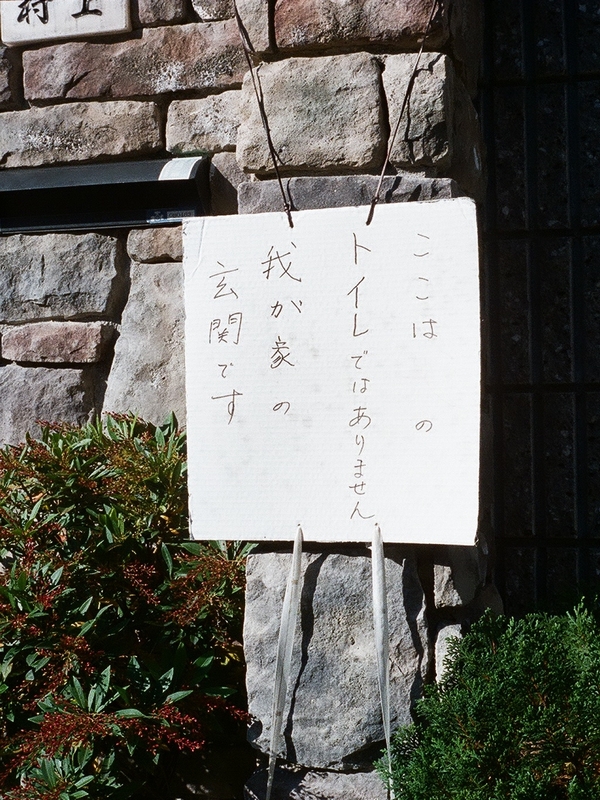 村上
ここは の
トイレではありません
我が家の
玄関です